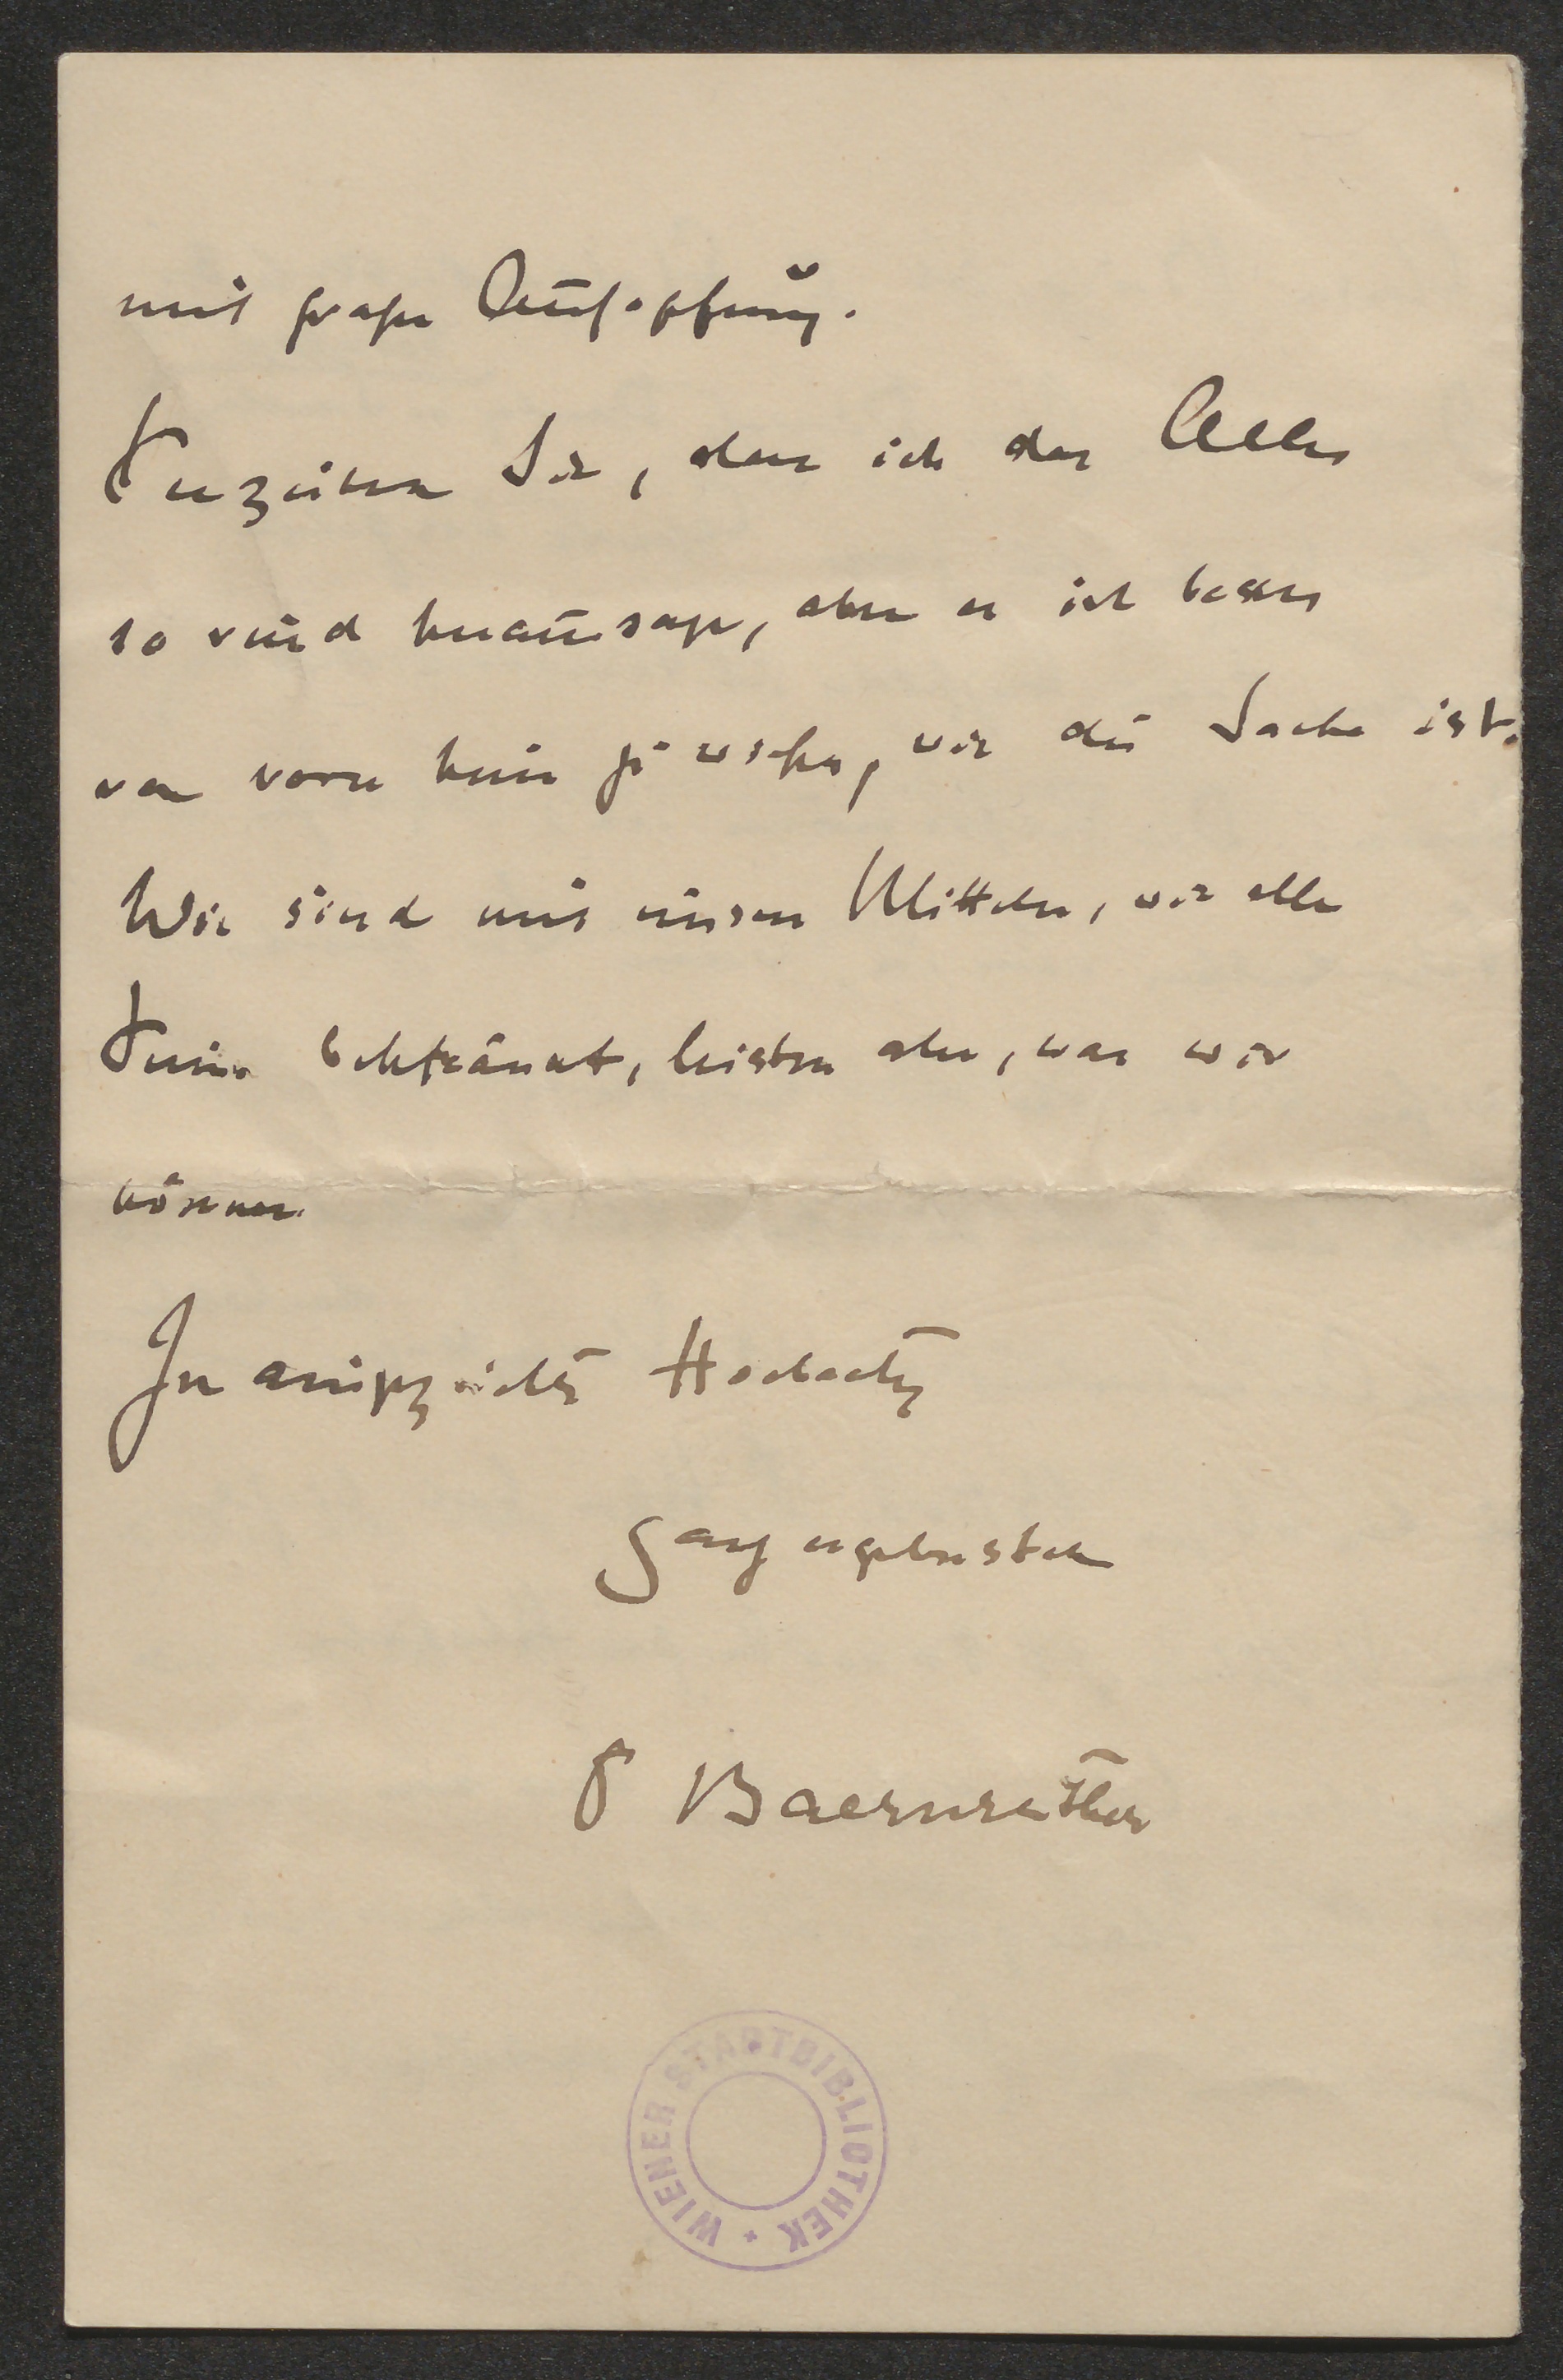 mit großer Aufopferung.
Verzeihen Sie, dass ich das Alles
so rund heraussage, aber es ist besser
von vorn herein zu wissen, wie die Sache ist.
Wir sind mit unseren Mitteln, wie alle
Vereine beschränkt, leisten aber, was wir
können.
In ausgezeichneter Hochachtung
Ganz ergebenster
Baernreither
WIENER STADTBIBLIOTHEK *